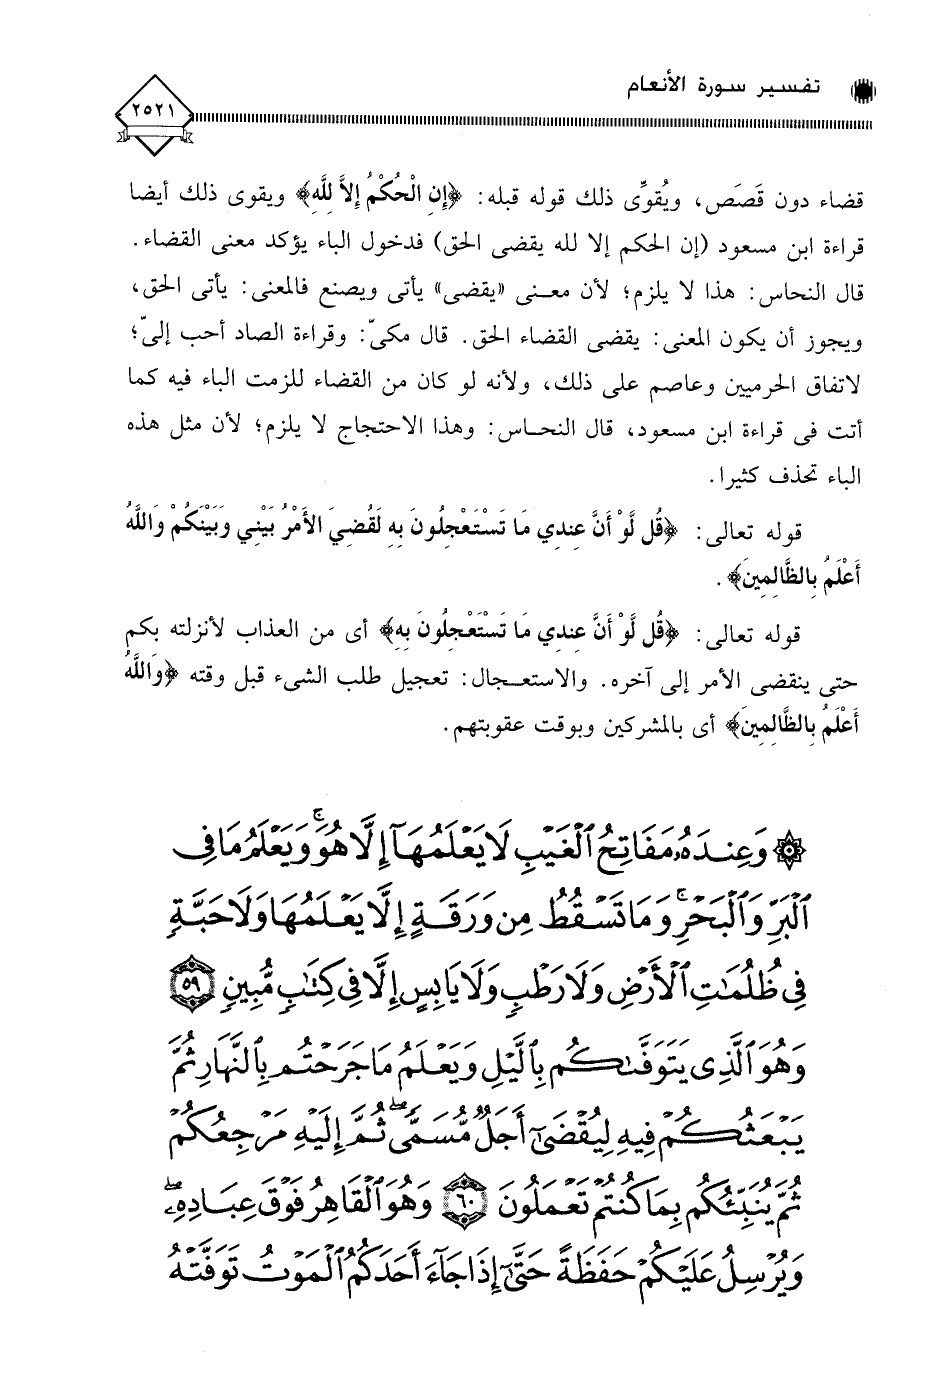 تفسير سورة الأنعام
٢٥٢١
قضاء دون قَصَص، ويُقوِّى ذلك قوله قبله: ﴿إِنِ الْحُكْمُ إِلاَّ لِلَّهِ﴾ ويقوى ذلك أيضا
قراءة ابن مسعود (إن الحكم إلا لله يقضى الحق) فدخول الباء يؤكد معنى القضاء.
قال النحاس: هذا لا يلزم؛ لأن معنى «يقضى» يأتى ويصنع فالمعنى: يأتى الحق،
ويجوز أن يكون المعنى: يقضى القضاء الحق. قال مكىّ: وقراءة الصاد أحب إلىّ؛
لاتفاق الحرميين وعاصم على ذلك، ولأنه لو كان من القضاء للزمت الباء فيه كما
أتت فى قراءة ابن مسعود، قال النحاس: وهذا الاحتجاج لا يلزم؛ لأن مثل هذه
الباء تحذف كثيرا.
قوله تعالى: ﴿قُل لَّوْ أَنَّ عِندِي مَا تَسْتَعْجِلُونَ بِهِ لَقُضِيَ الأَمْرُ بَيْنِي وَبَيْنَكُمْ وَاللَّهُ
أَعْلَمُ بِالظَّالِمِينَ﴾.
قوله تعالى: ﴿قُل لَّوْ أَنَّ عِندِي مَا تَسْتَعْجِلُونَ بِهِ﴾ أى من العذاب لأنزلته بكم
حتى ينقضى الأمر إلى آخره. والاستعجال: تعجيل طلب الشىء قبل وقته ﴿وَاللَّهُ
أَعْلَمُ بِالظَّالِمِينَ﴾ أى بالمشركين وبوقت عقوبتهم.
۞ وَعِندَهُۥ مَفَاتِحُ ٱلْغَيْبِ لَا يَعْلَمُهَآ إِلَّا هُوَۚ وَيَعْلَمُ مَا فِى
ٱلْبَرِّ وَٱلْبَحْرِۚ وَمَا تَسْقُطُ مِن وَرَقَةٍ إِلَّا يَعْلَمُهَا وَلَا حَبَّةٍ
فِى ظُلُمَٰتِ ٱلْأَرْضِ وَلَا رَطْبٍ وَلَا يَابِسٍ إِلَّا فِى كِتَٰبٍ مُّبِينٍ ٥٩
وَهُوَ ٱلَّذِى يَتَوَفَّىٰكُم بِٱلَّيْلِ وَيَعْلَمُ مَا جَرَحْتُم بِٱلنَّهَارِ ثُمَّ
يَبْعَثُكُمْ فِيهِ لِيُقْضَىٰٓ أَجَلٌ مُّسَمًّىۖ ثُمَّ إِلَيْهِ مَرْجِعُكُمْ
ثُمَّ يُنَبِّئُكُم بِمَا كُنتُمْ تَعْمَلُونَ ٦٠ وَهُوَ ٱلْقَاهِرُ فَوْقَ عِبَادِهِۦۖ
وَيُرْسِلُ عَلَيْكُمْ حَفَظَةً حَتَّىٰٓ إِذَا جَآءَ أَحَدَكُمُ ٱلْمَوْتُ تَوَفَّتْهُ